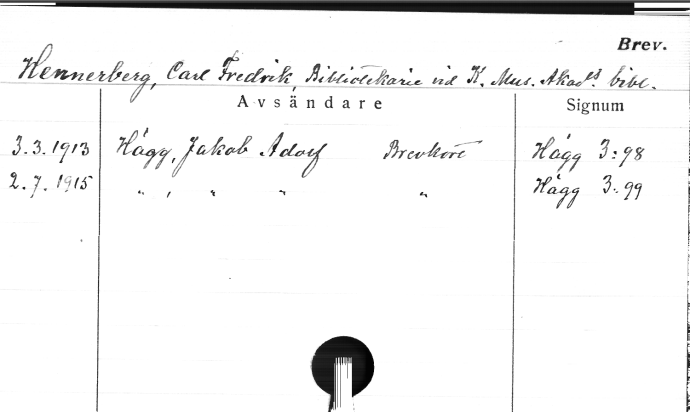 Brev.
Hennerberg, Carl Fredrik, Bibliotekarie vid K. Mus. Akad:s bibl.
Avsändare Signum
3.3.1913 Hägg, Jakob Adolf Brevkort Hägg 3:98
2.7.1915 " , " " " Hägg 3:99